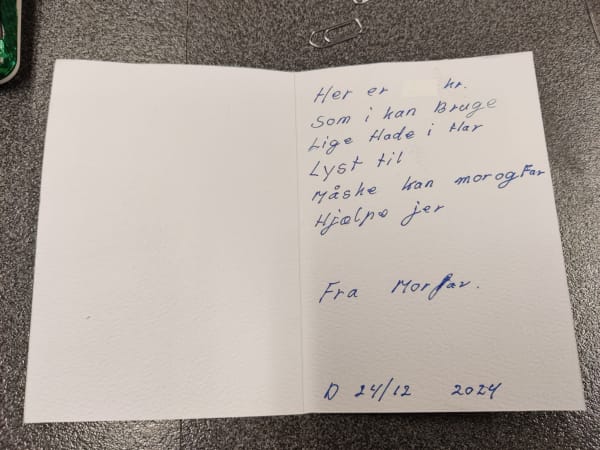 Her er kr.
Som i kan Bruge
Lige Hade i Har
Lyst til
Måske kan mor og Far
Hjælpe jer
Fra Morfar.
D 24/12 2024